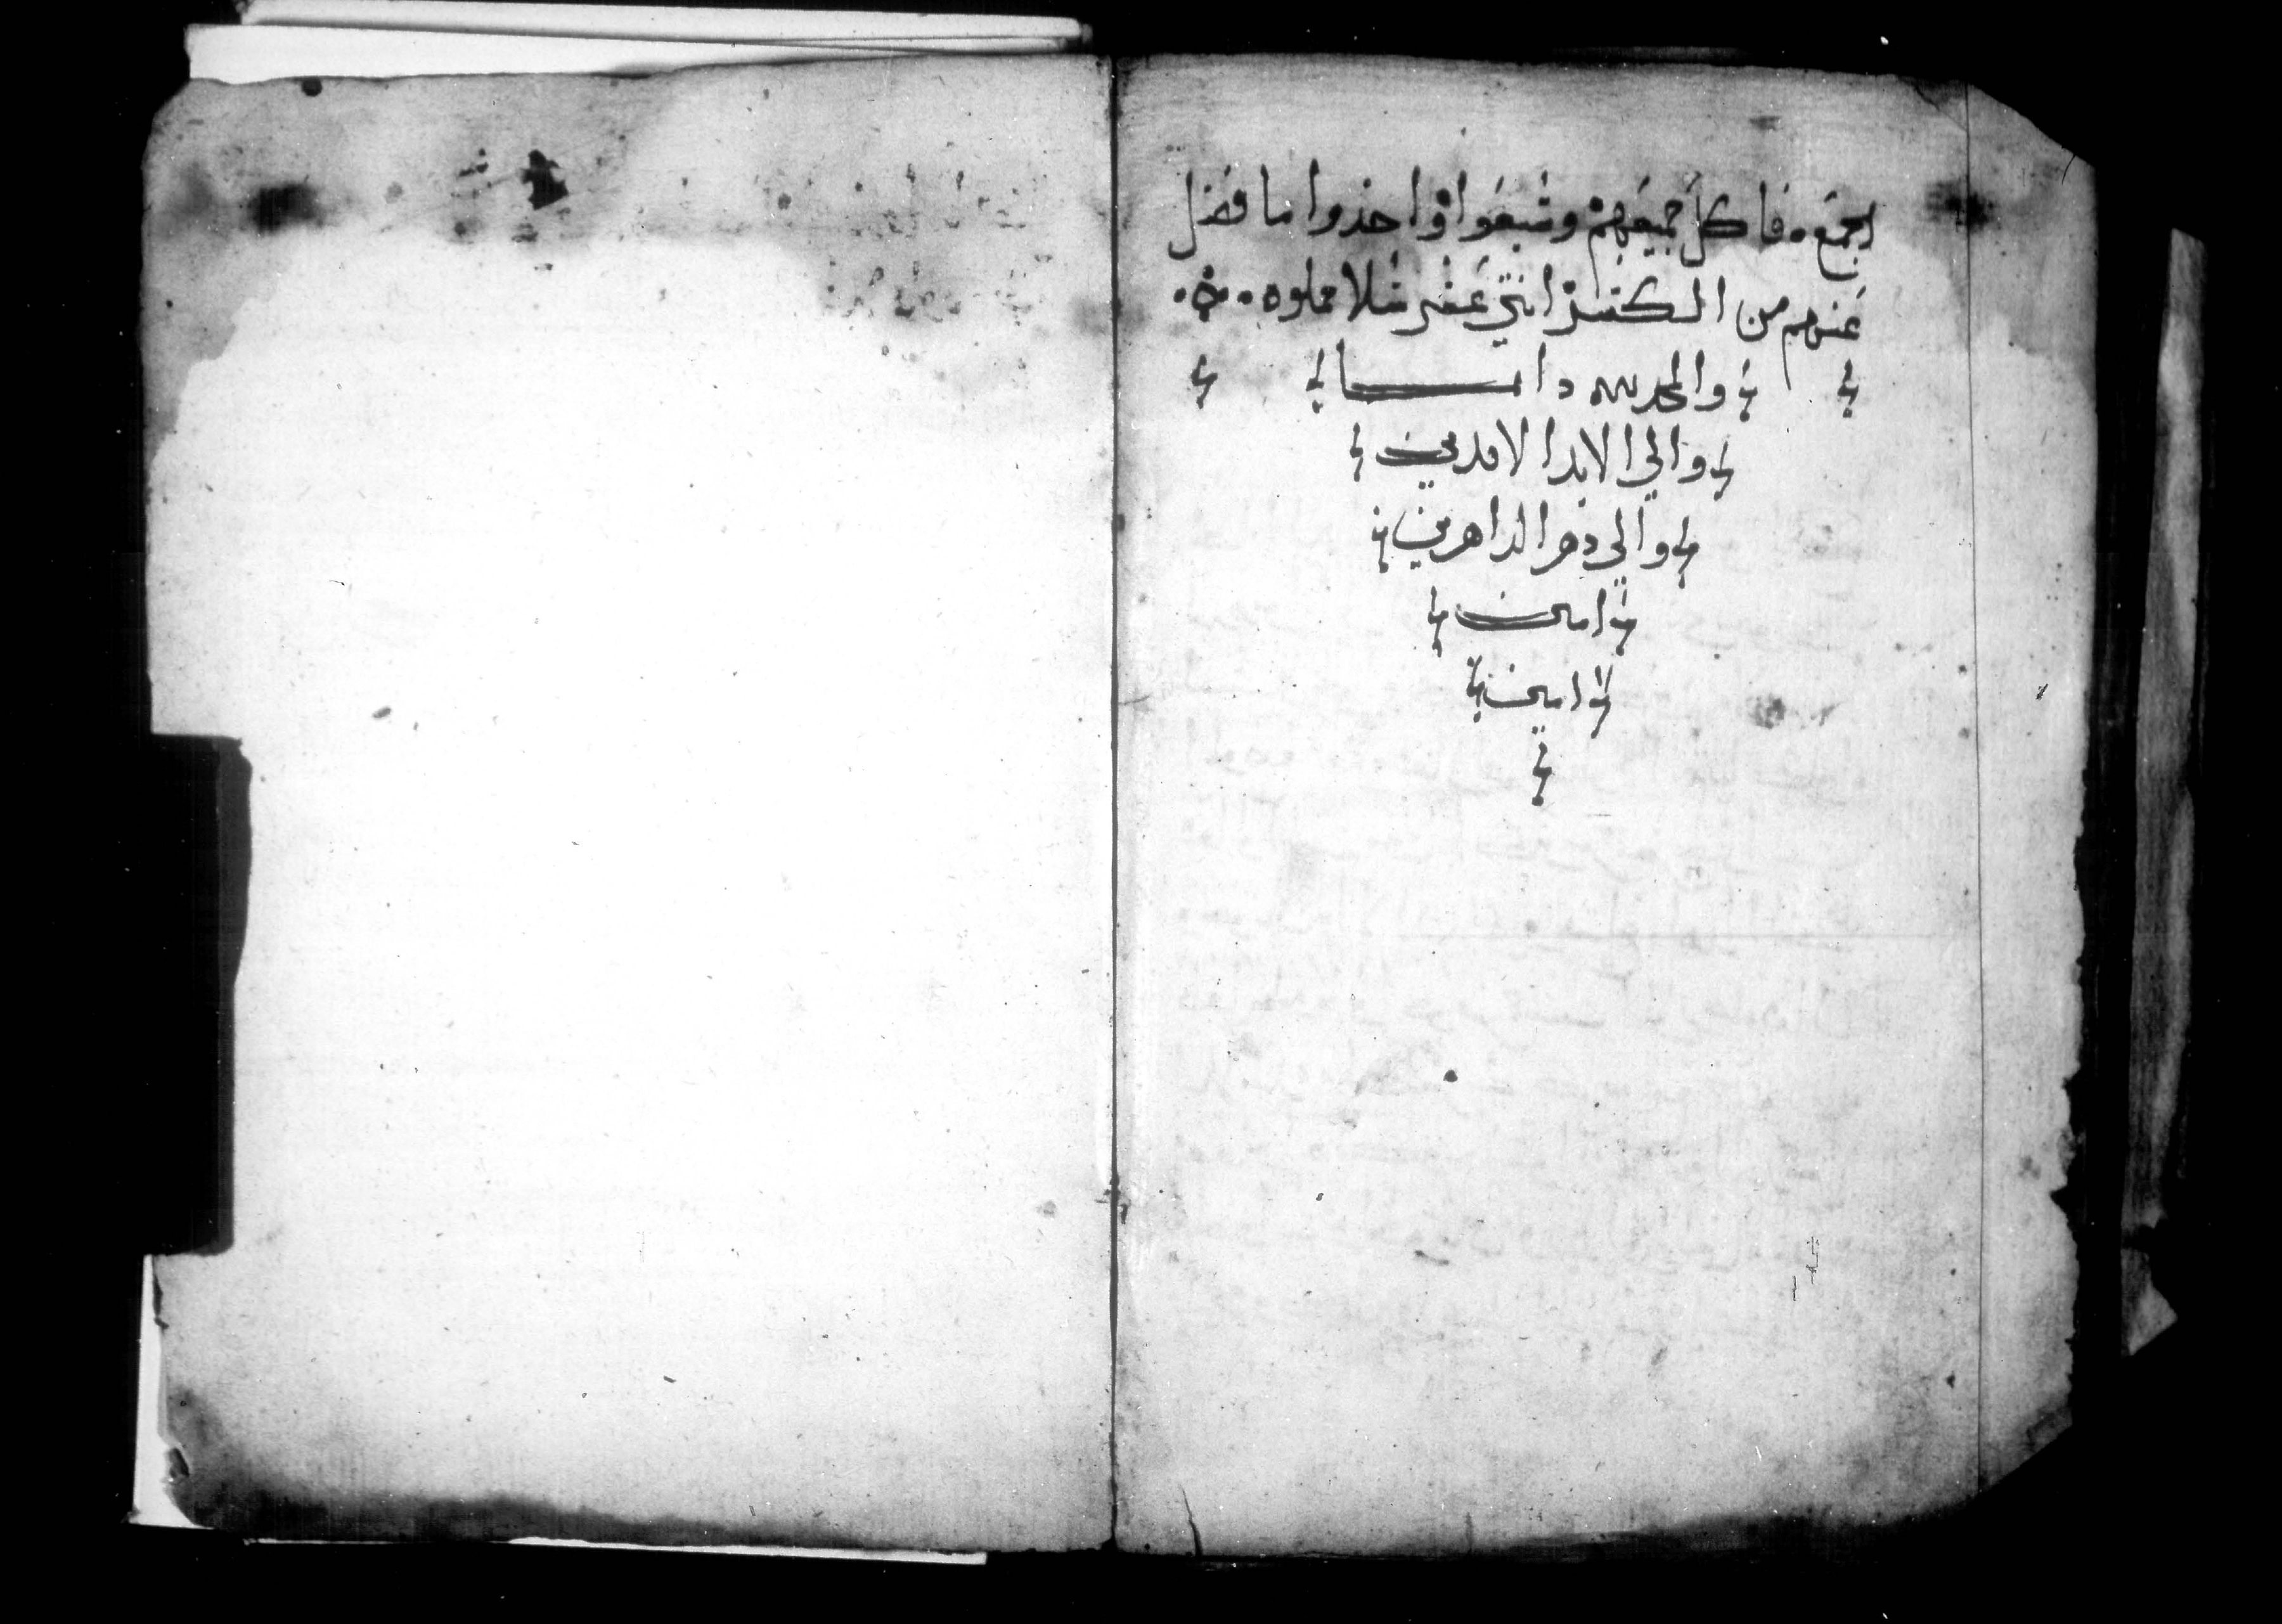 الجمع. فاكل جميعهم وشبعوا واخذوا ما فضل
عنهم من الكسر اثني عشر سلا مملوه
والمجد لله دايما
والي الابد الابدين
والي دهر الداهرين
امين
امين